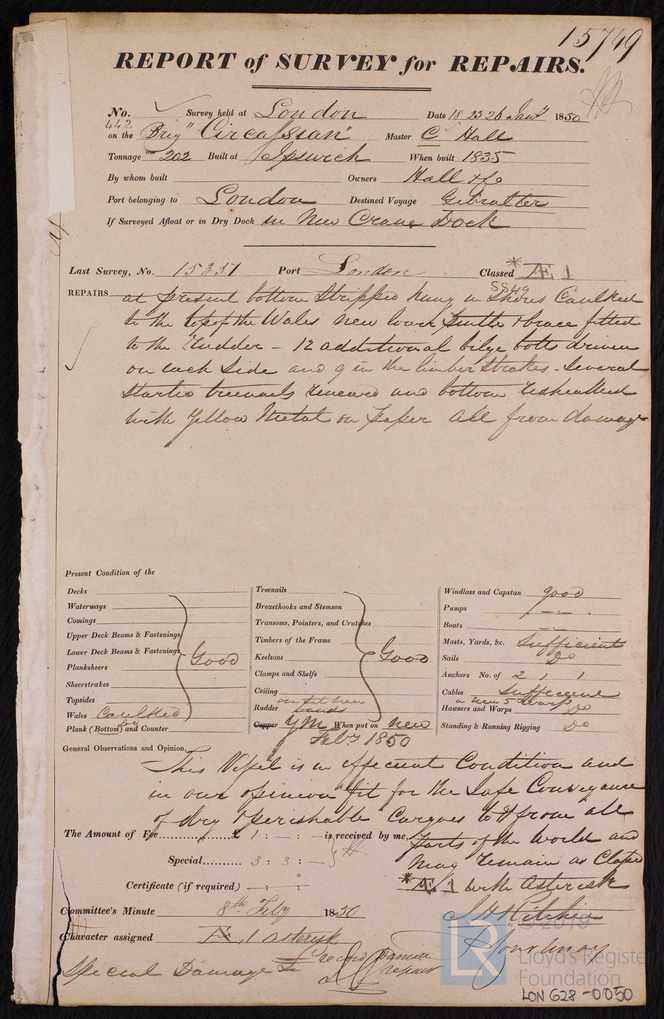 15749
REPORT of SURVEY for REPAIRS.
No. 442 Survey held at London Date 18 23 26 Jany 1850
on the Brig "Circassian" Master C Hall
Tonnage 202 Built at Ipswich When built 1835
By whom built Owners Hall & Co
Port belonging to London Destined Voyage Gibralter
If Surveyed Afloat or in Dry Dock in New Crane Dock
Last Survey, No. 15351 Port London Classed * Æ 1
5849
REPAIRS at present bottom stripped hung in Shores Caulked
to the top of the Wales new lower & brace fitted
to the Rudder - 12 additional bilge bolts driven
on each side and 9 in the limber Strakes - Several
started treenails renewed and bottom resheathed
with Yellow Metal on Paper all from damage
Present Condition of the
Decks
Waterways
Comings
Upper Deck Beams & Fastenings
Lower Deck Beams & Fastenings Good
Planksheers
Sheerstrakes
Topsides
Wales Caulked
Plank (Bottom) and Counter Do
Treenails
Breasthooks and Stemson
Transoms, Pointers, and Crutches
Timbers of the Frame
Keelsons Good
Clamps and Shelfs
Ceiling
Rudder new
Copper YM When put on new
Feby 1850
Windlass and Capstan good
Pumps
Boats
Masts, Yards, &c. Sufficient
Sails Do
Anchors No. of 2 , 1 , 1
Cables Sufficient
a new 5 warp
Hausers and Warps Do
Standing & Running Rigging Do
General Observations and Opinion,
This Vessel is in efficient Condition and
in our opinion fit for the Safe Conveyance
of dry & perishable Cargoes to & from all
parts of the World and
may remain as Classed
* Æ 1 with Asterisk
The Amount of Fee............£ 1 : - : - is received by me,
Special.......... 3 : 3 : -
Certificate (if required) - : - : -
Committee's Minute 8th Feby 1850
Character assigned Æ 1 asterisk
Special Damage
© 2019
LR
Lloyd's Register
Foundation
LON 628-0050